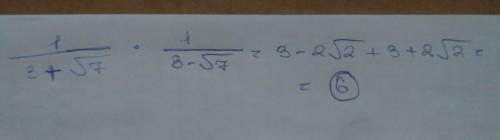 1/(3+√7) · 1/(3-√7) = 3-2√2+3+2√2 =
= 6